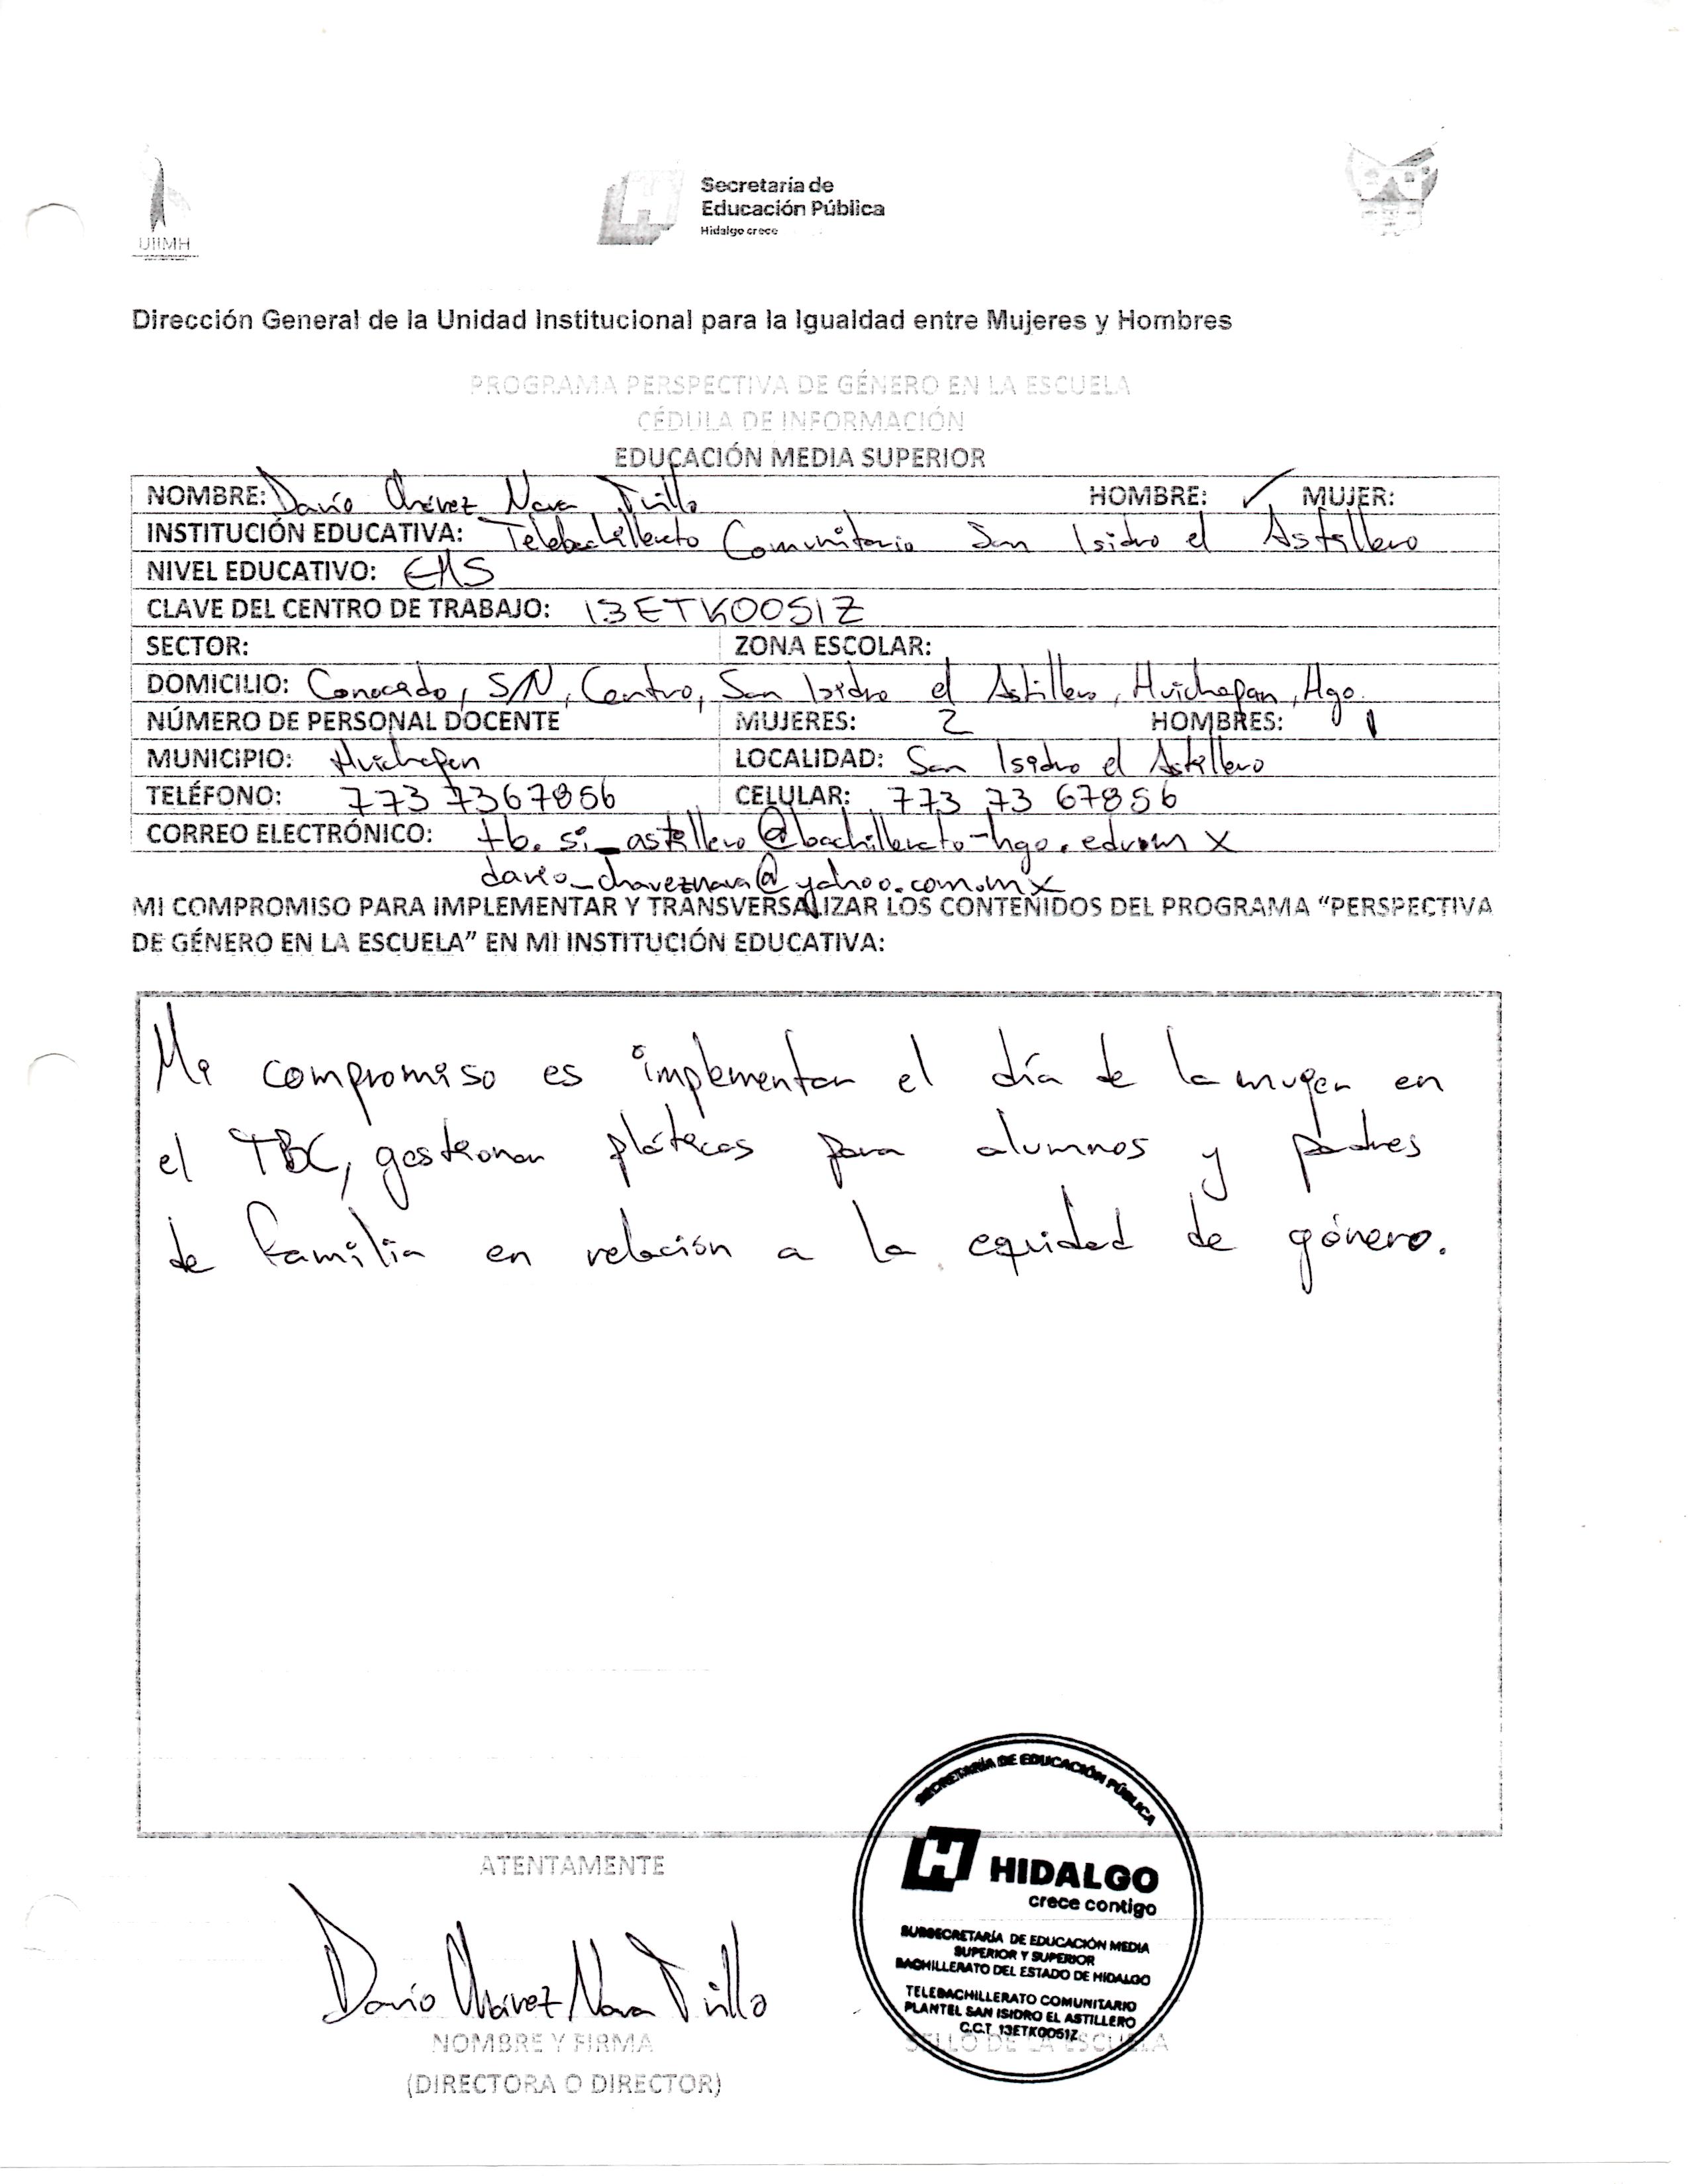 UIIMH
Secretaría de
Educación Pública
Hidalgo crece
Dirección General de la Unidad Institucional para la Igualdad entre Mujeres y Hombres
PROGRAMA PERSPECTIVA DE GÉNERO EN LA ESCUELA
CÉDULA DE INFORMACIÓN
EDUCACIÓN MEDIA SUPERIOR
NOMBRE: Darío Chávez Nava Trillo HOMBRE: ✓ MUJER:
INSTITUCIÓN EDUCATIVA: Telebachillerato Comunitario San Isidro el Astillero
NIVEL EDUCATIVO: EMS
CLAVE DEL CENTRO DE TRABAJO: 13ETK0051Z
SECTOR: ZONA ESCOLAR:
DOMICILIO: Conocido, S/N, Centro, San Isidro el Astillero, Huichapan, Hgo.
NÚMERO DE PERSONAL DOCENTE MUJERES: 2 HOMBRES: 1
MUNICIPIO: Huichapan LOCALIDAD: San Isidro el Astillero
TELÉFONO: 773 7367856 CELULAR: 773 73 67856
CORREO ELECTRÓNICO: tb.si_astillero@bachillerato-hgo.edu.mx
dario_chaveznava@yahoo.com.mx
MI COMPROMISO PARA IMPLEMENTAR Y TRANSVERSALIZAR LOS CONTENIDOS DEL PROGRAMA “PERSPECTIVA
DE GÉNERO EN LA ESCUELA” EN MI INSTITUCIÓN EDUCATIVA:
Mi compromiso es implementar el día de la mujer en
el TBC, gestionar pláticas para alumnos y padres
de familia en relación a la equidad de género.
ATENTAMENTE
Darío Chávez Nava Trillo
NOMBRE Y FIRMA
(DIRECTORA O DIRECTOR)
SECRETARÍA DE EDUCACIÓN PÚBLICA
HIDALGO
crece contigo
SUBSECRETARÍA DE EDUCACIÓN MEDIA
SUPERIOR Y SUPERIOR
BACHILLERATO DEL ESTADO DE HIDALGO
TELEBACHILLERATO COMUNITARIO
PLANTEL SAN ISIDRO EL ASTILLERO
C.C.T. 13ETK0051Z
SELLO DE LA ESCUELA